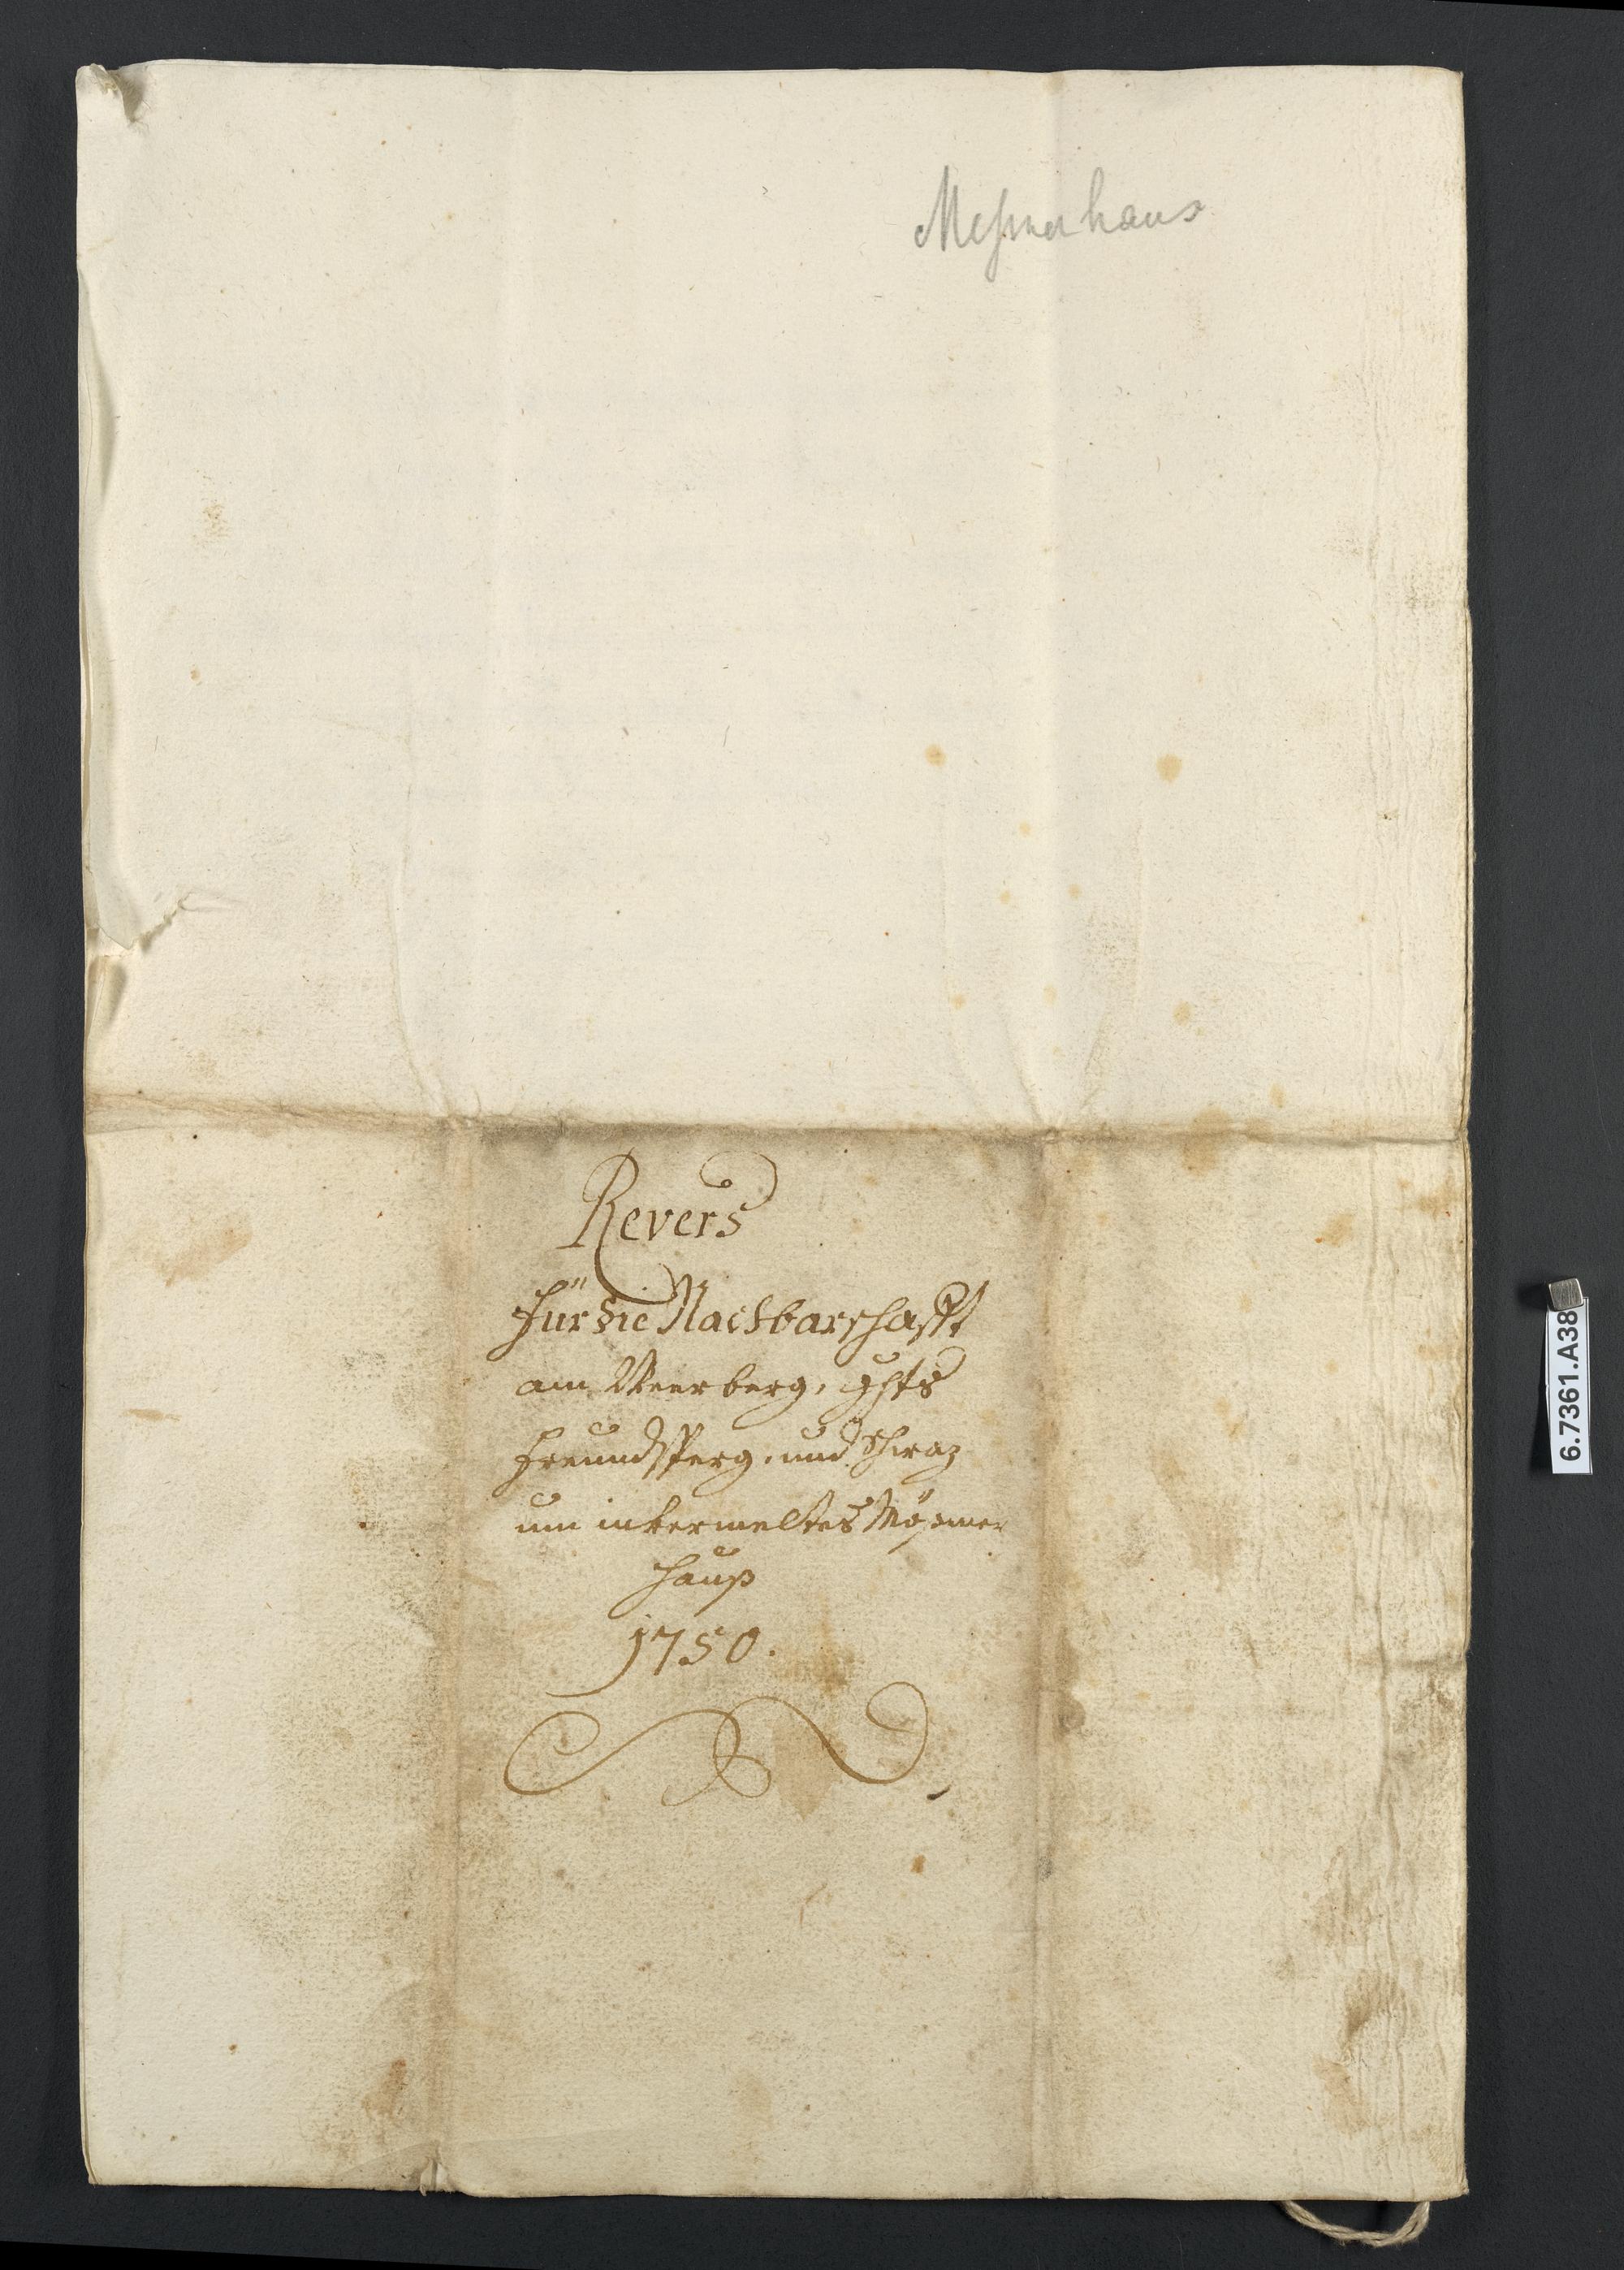 Meßnerhaus
Revers
Für die Nachbarschafft
am Weerberg, Ghts
Freundsperg, und Schwaz
um inbermeltes Mößmer
Hauß
1750.
6.7361.A38